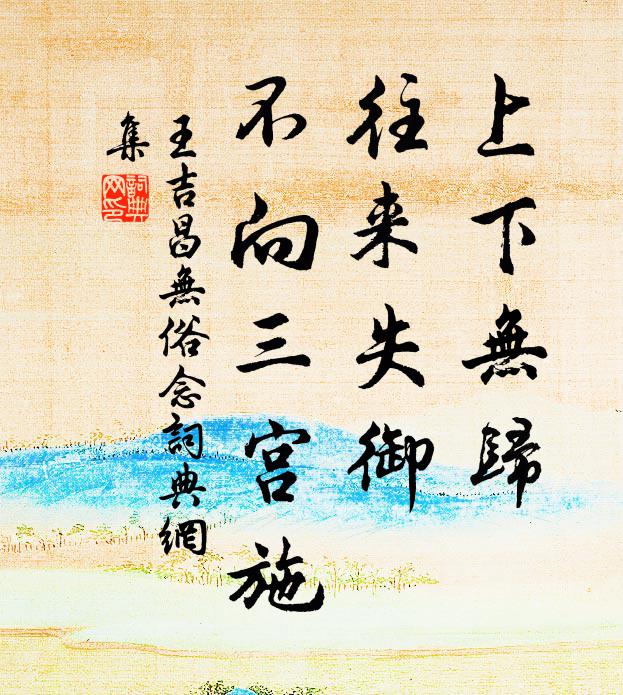 上下無歸
往来失御
不向三宫施
王吉昌無俗念詞典網
集
詞典
网印